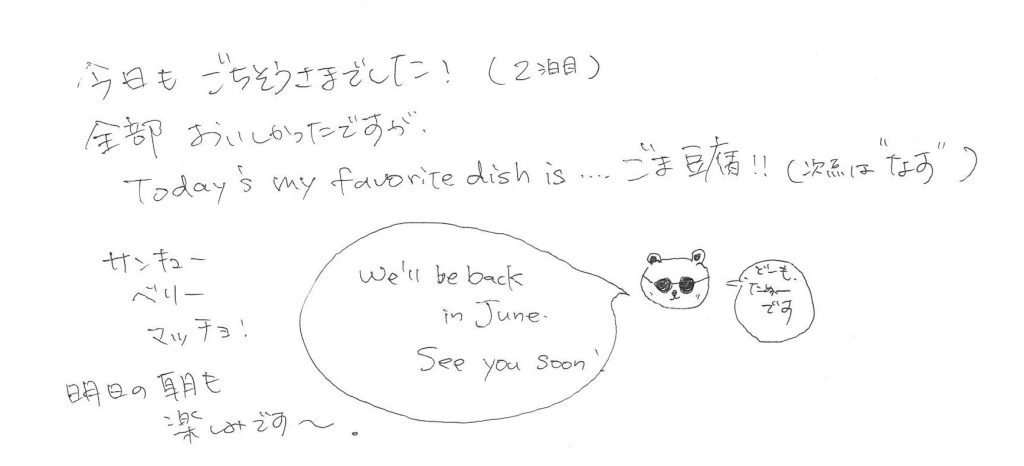 今日も ごちそうさまでした！（2泊目）
全部 おいしかったですが、
Today's my favorite dish is .... ごま豆腐!!（次点は"なす"）
サンキュー
ベリー
マッチョ！
明日の朝も
楽しみです〜.
We'll be back
in June.
See you soon!
どーも、
です